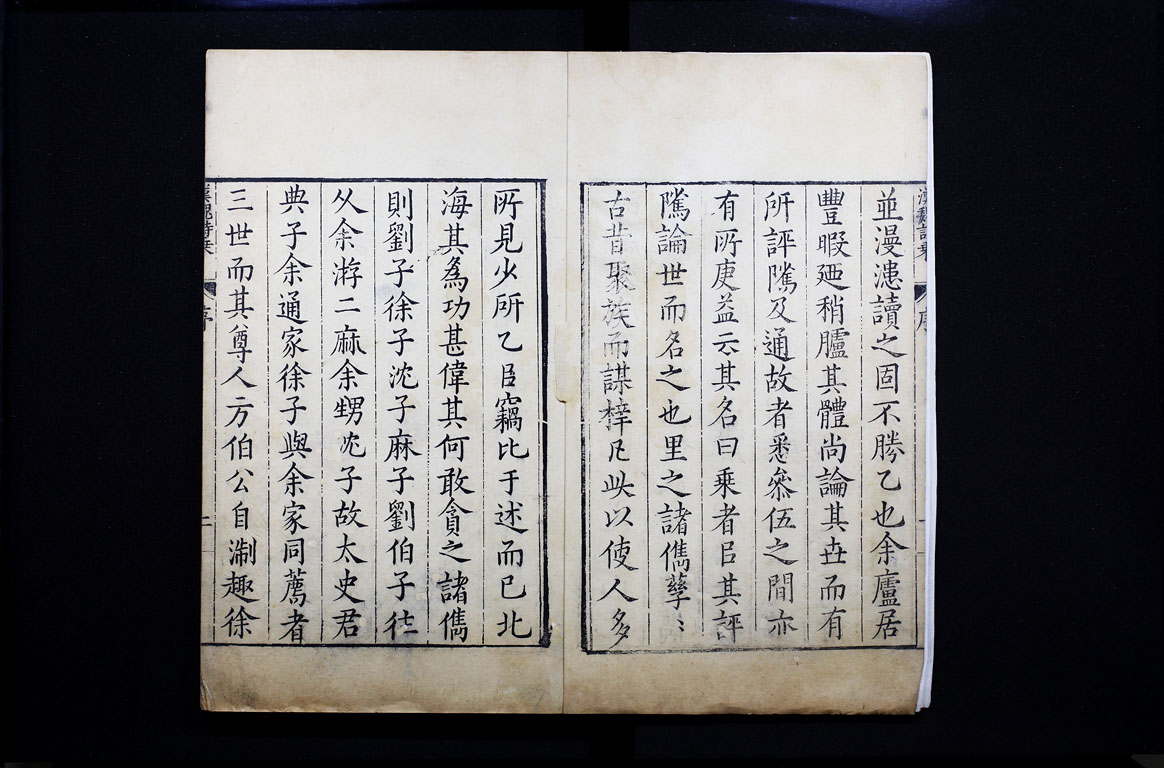 並漫漶讀之固不勝乙也余廬居
豐暇廼稍臚其體尚論其世而有
所評隲及通故者悉叅伍之間亦
有所庚益云其名曰乘者㠯其評
隲論世而名之也里之諸儁孳〻
古昔聚族而謀梓凡此以使人多
所見少所乙㠯竊比于述而已北
海其為功甚偉其何敢貪之諸儁
則劉子徐子沈子麻子劉伯子往
从余游二麻余甥沈子故太史君
典子余通家徐子與余家同薦者
三世而其尊人方伯公自淛趣徐
漢魏詩乘
序
二